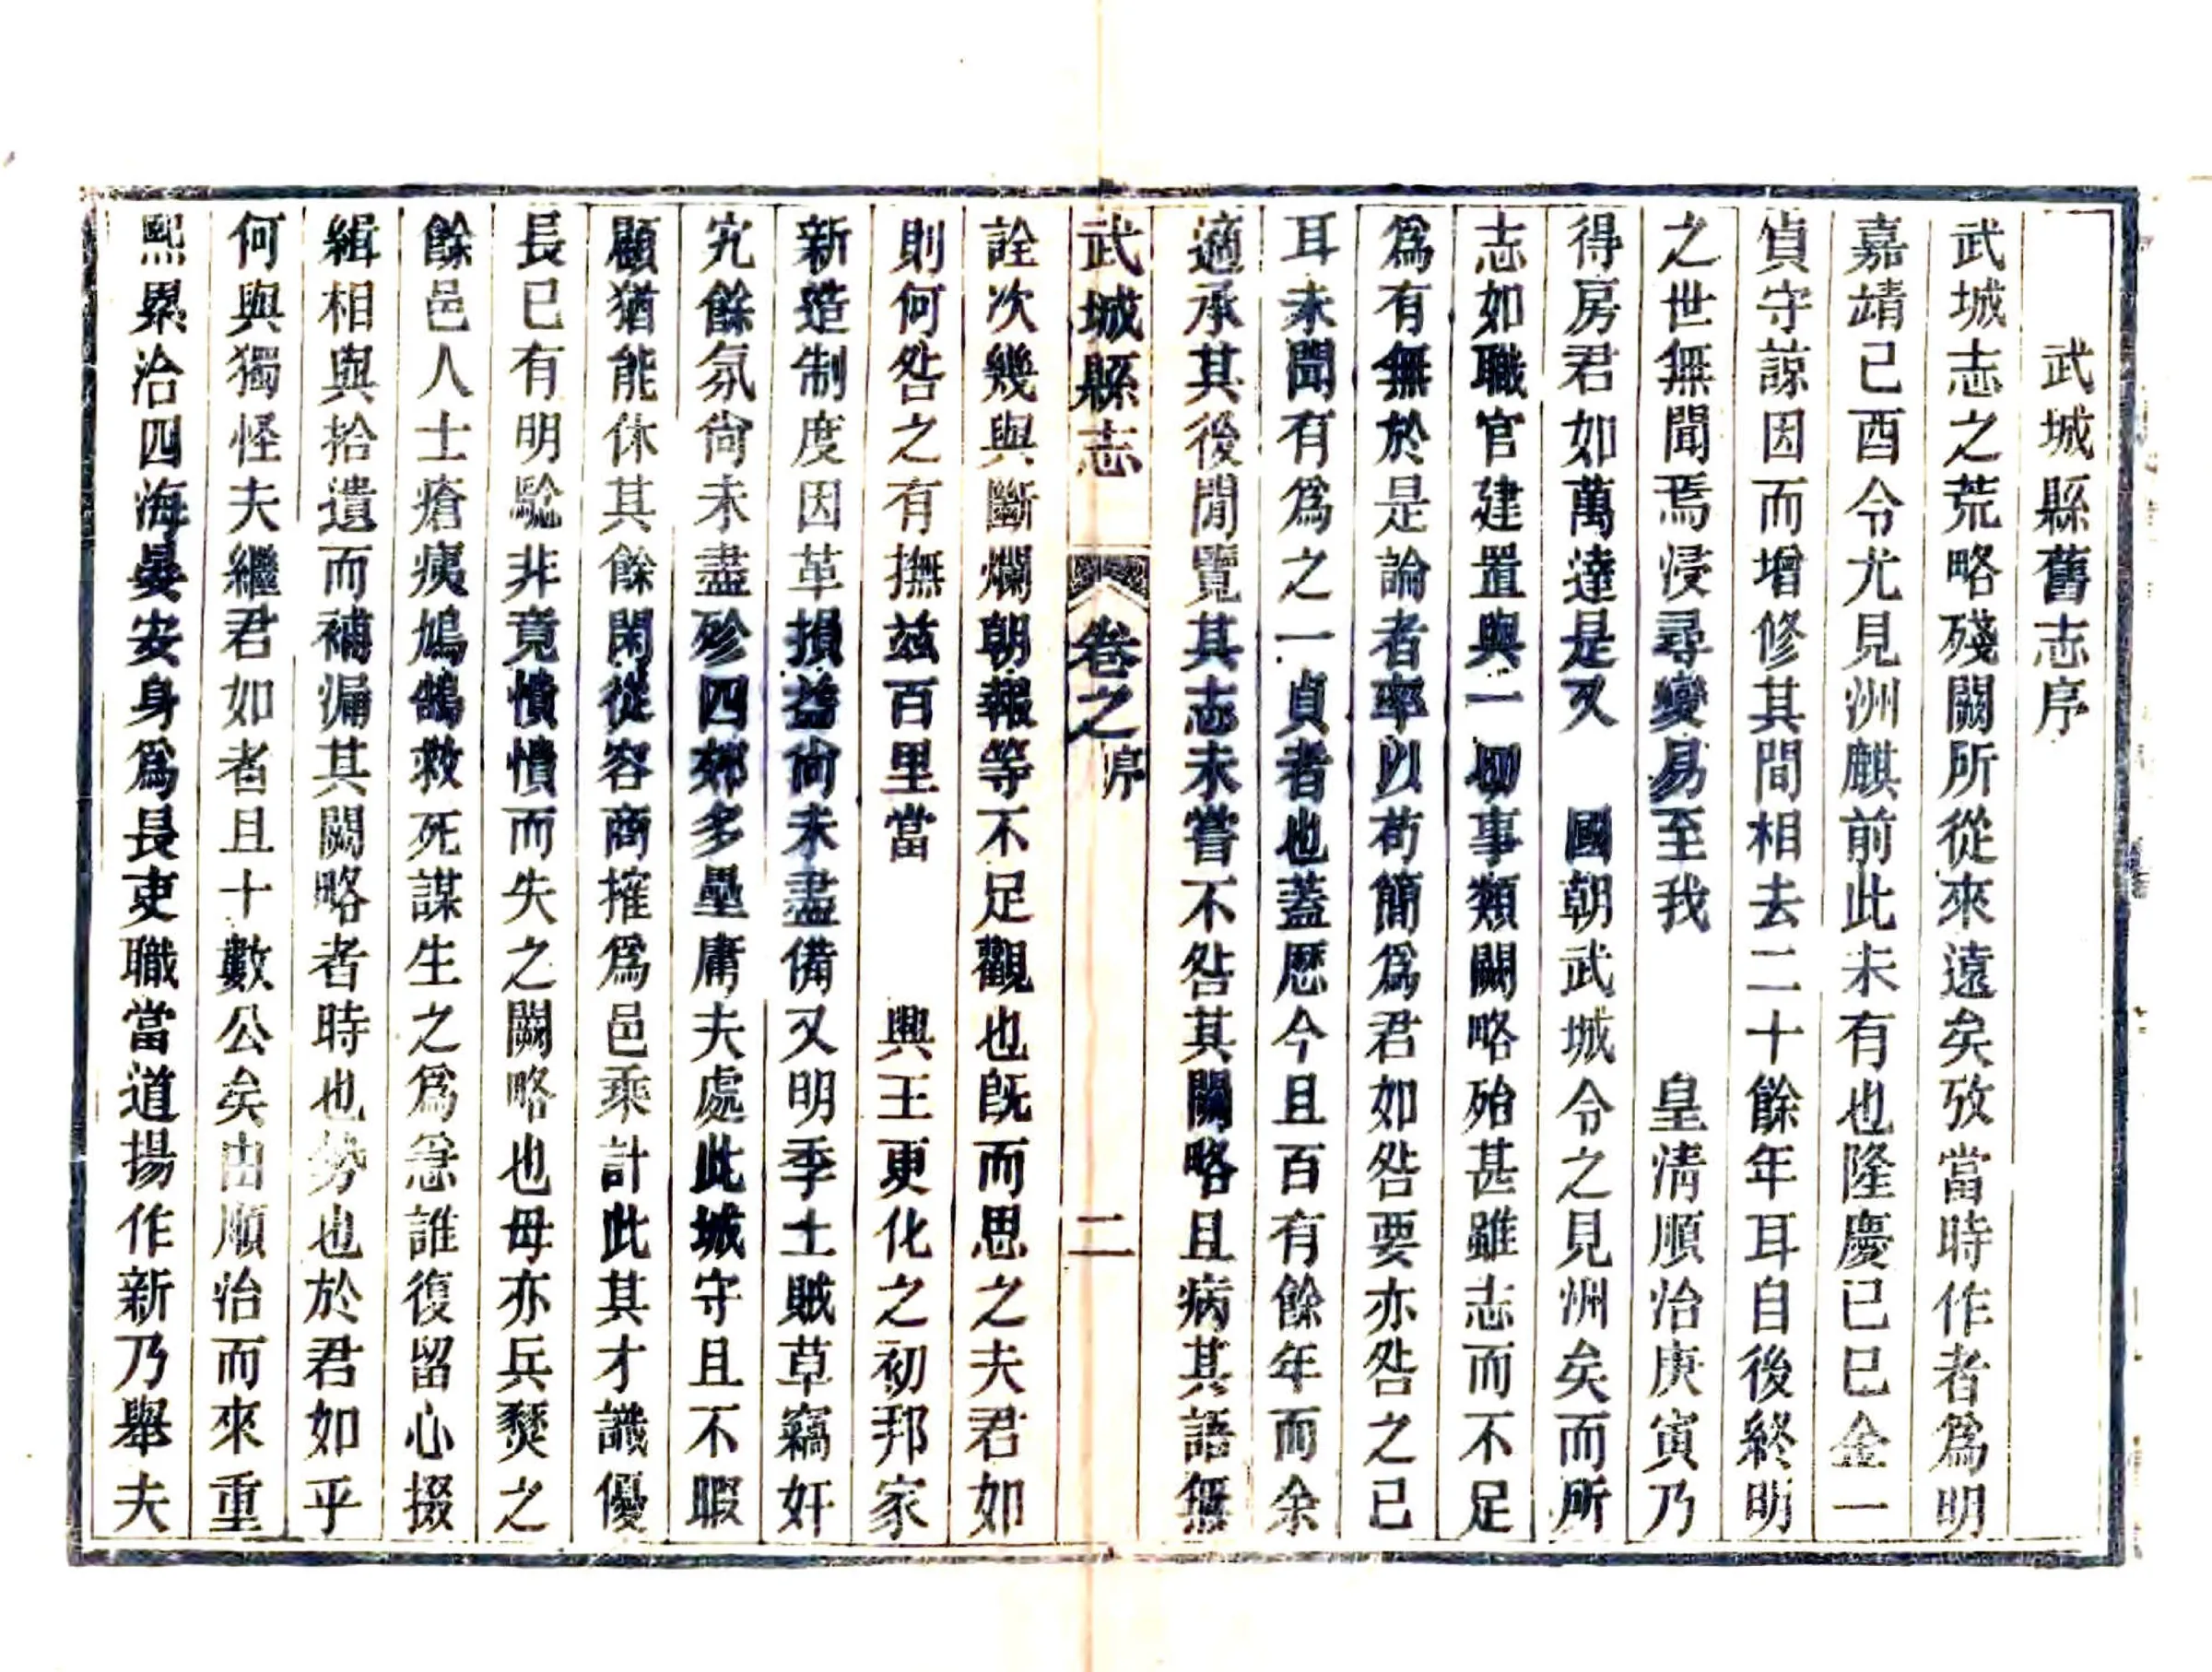 武城縣舊志序
武城志之荒略殘闕所從來遠矣攷當時作者爲明
嘉靖己酉令尤見洲麒前此未有也隆慶己巳金一
貞守諒因而增修其間相去二十餘年耳自後終明
之世無聞焉浸尋變易至我　皇清順治庚寅乃
得房君如萬達是又　國朝武城令之見洲矣而所
志如職官建置與一切事類闕略殆甚雖志而不足
爲有無於是論者率以苟簡爲君如咎要亦咎之已
耳未聞有爲之一貞者也蓋歷今且百有餘年而余
適承其後閒覽其志未嘗不咎其闕略且病其語無
武城縣志　卷之序　二
詮次幾與斷爛朝報等不足觀也旣而思之夫君如
則何咎之有撫兹百里當　興王更化之初邦家
新造制度因革損益尙未盡備又明季土賊草竊奸
宄餘氛尙未盡殄四郊多壘庸夫處此城守且不暇
顧猶能休其餘閑從容商搉爲邑乘計此其才識優
長已有明騐非竟憒憒而失之闕略也毋亦兵燹之
餘邑人士瘡痍鳩鵠救死謀生之爲急誰復留心掇
緝相與拾遺而補漏其闕略者時也勢也於君如乎
何與獨怪夫繼君如者且十數公矣由順治而來重
熙累洽四海晏安身爲長吏職當道揚作新乃舉夫